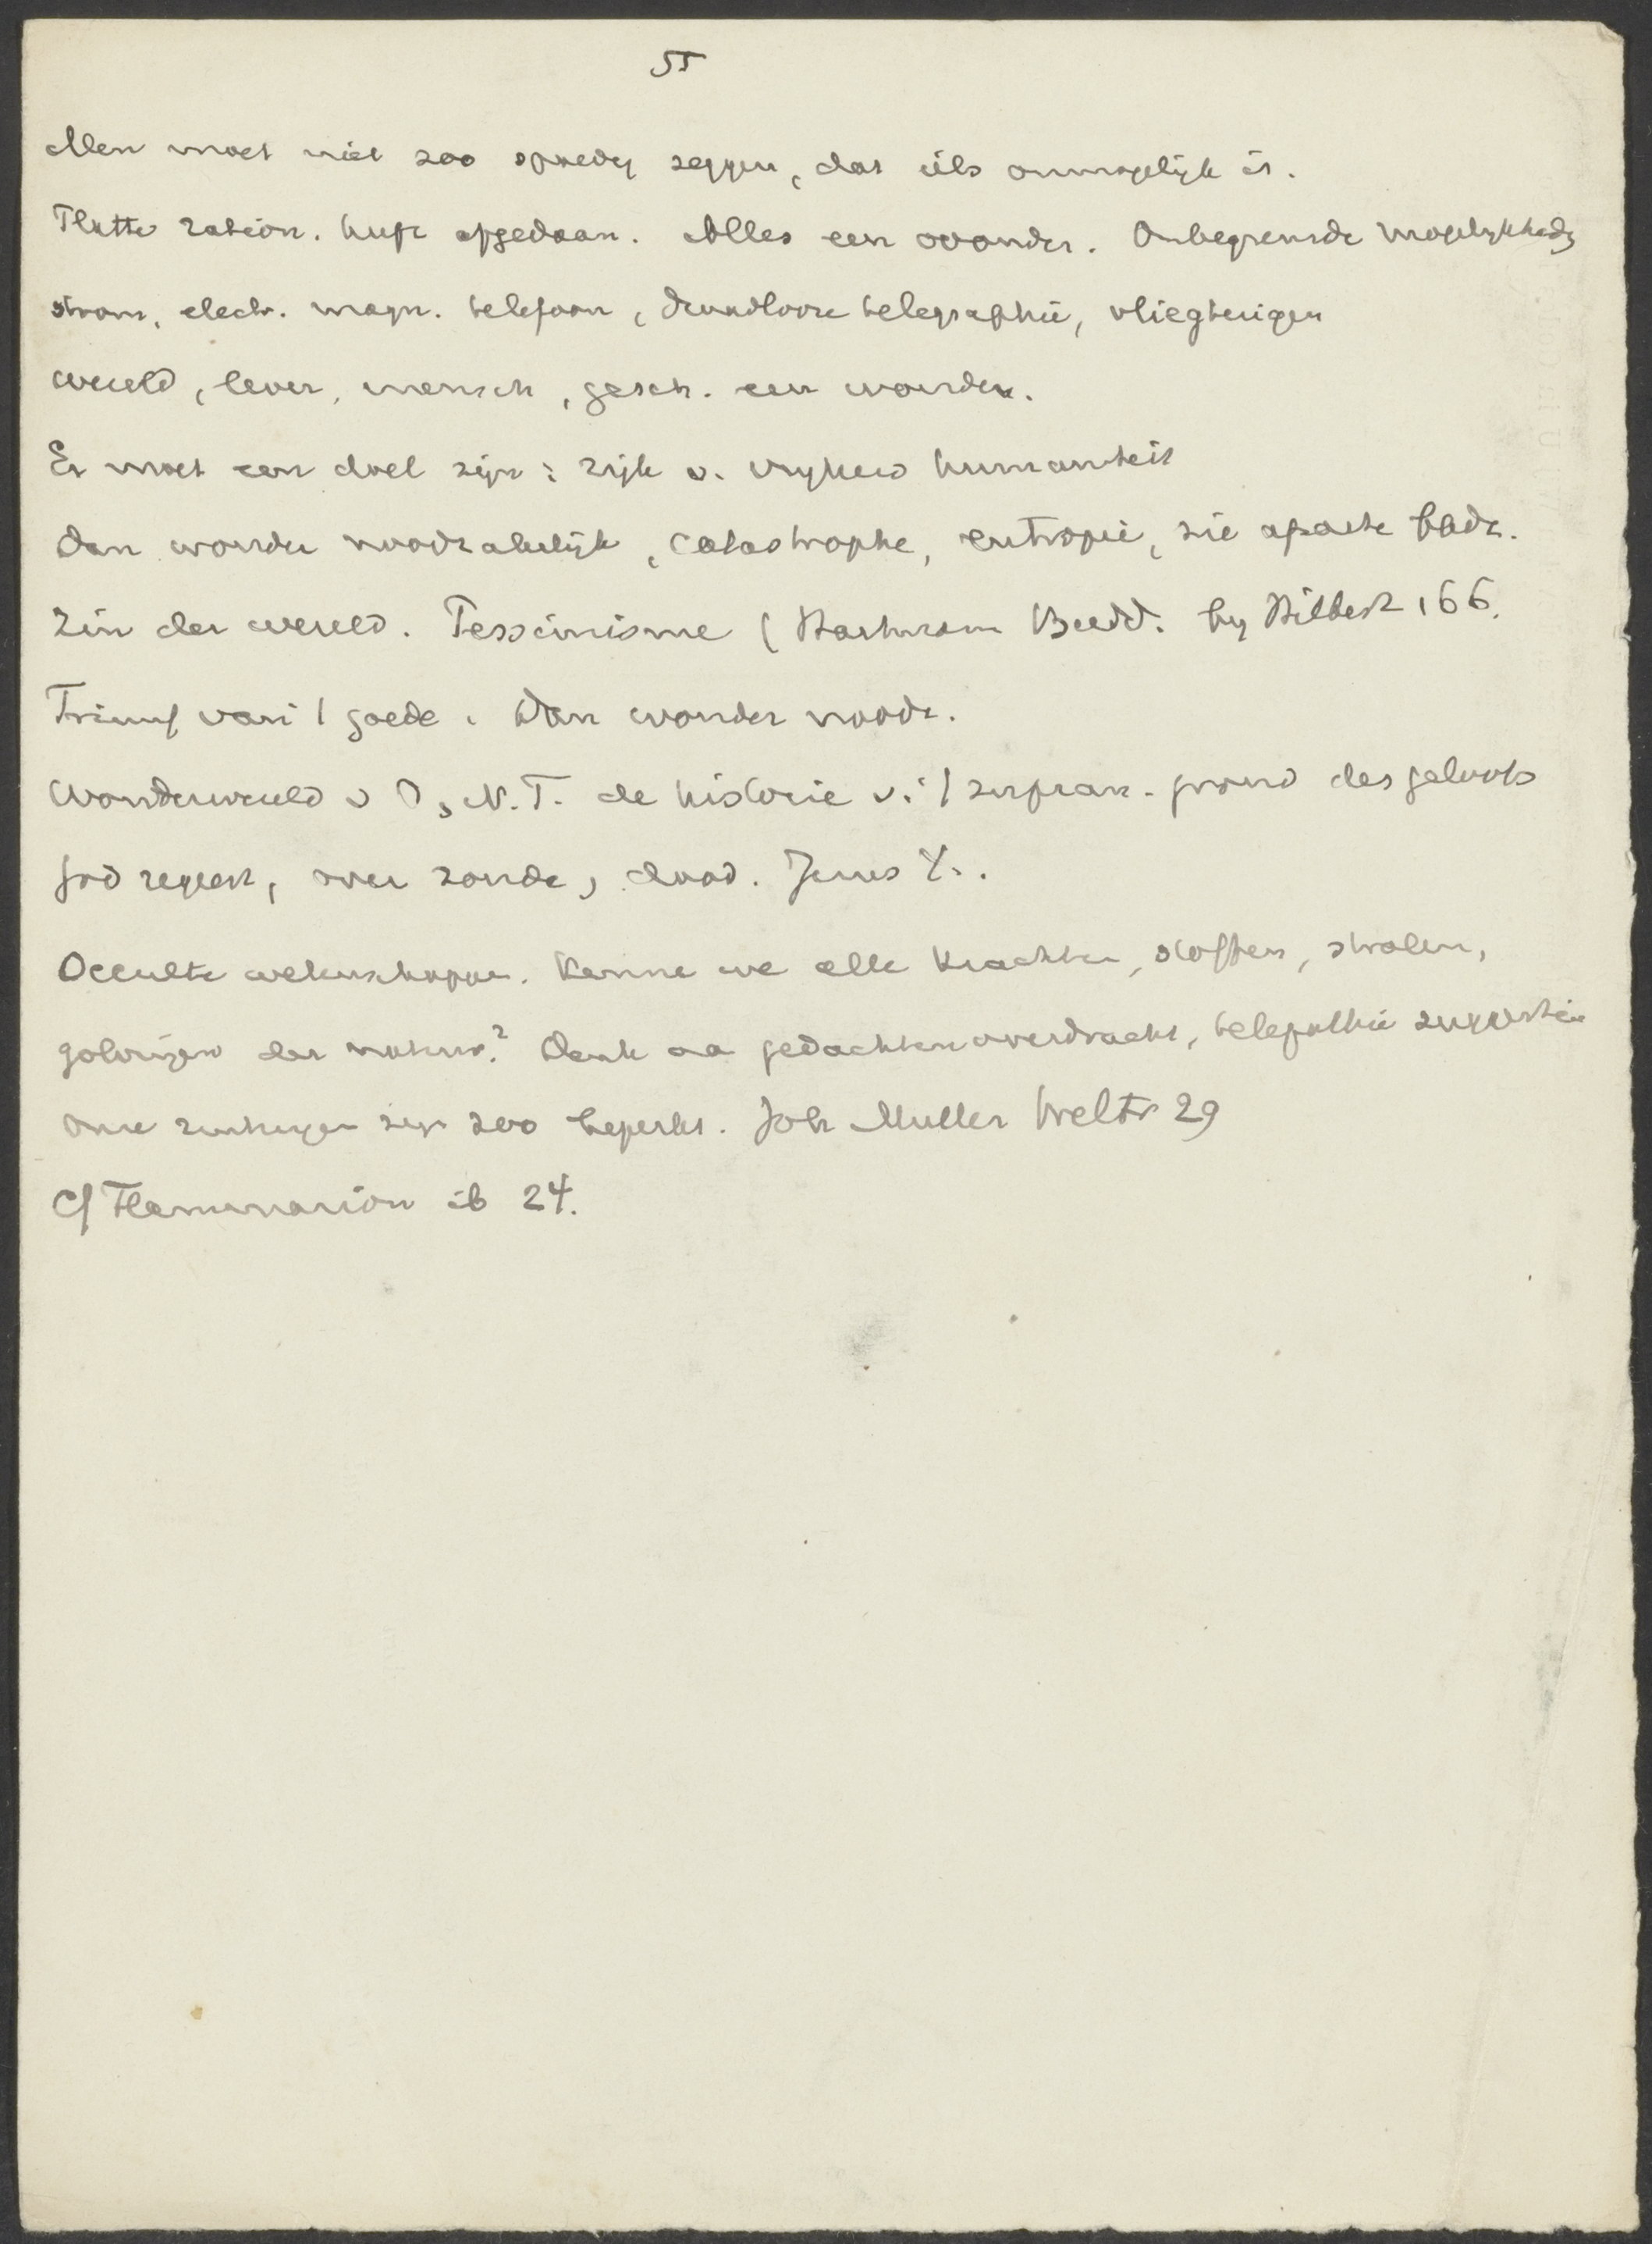 55
Men moet niet zoo spoedig zeggen, dat iets onmogelijk is.
Platte ration. heeft afgedaan. Alles een wonder. Onbegrensde mogelijkhedn
stoom, electr. magn. telefoon, draadlooze telegraphie, vliegtuigen
wereld, leven, mensch, gesch. een wonder.
Er moet een doel zijn: rijk v. vrijheid humaniteit
Dan wonder noodzakelijk, catastrophe, entropie, zie aparte bladz.
Zin der wereld. Pessimisme (Hartmann Budd. by Hilbert 166.
Triumf van 't goede. Dan wonder noodz.
Wonderwereld v O, N.T. de historie v. 't grond des geloofs
God regeert, over zonde, dood. Jezus X.
Occulte wetenschappen. Kennen we alle krachten, stoffen, stralen,
golvingen der natuur? Denk aa gedachtenoverdracht, telepathie suggestie
Onze zintuigen zijn zoo beperkt. Joh Muller Weltr 29
Cf Flammarion ib 24.